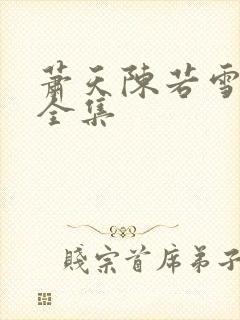 蕭天陈若雪
全集
賤宗首席弟子